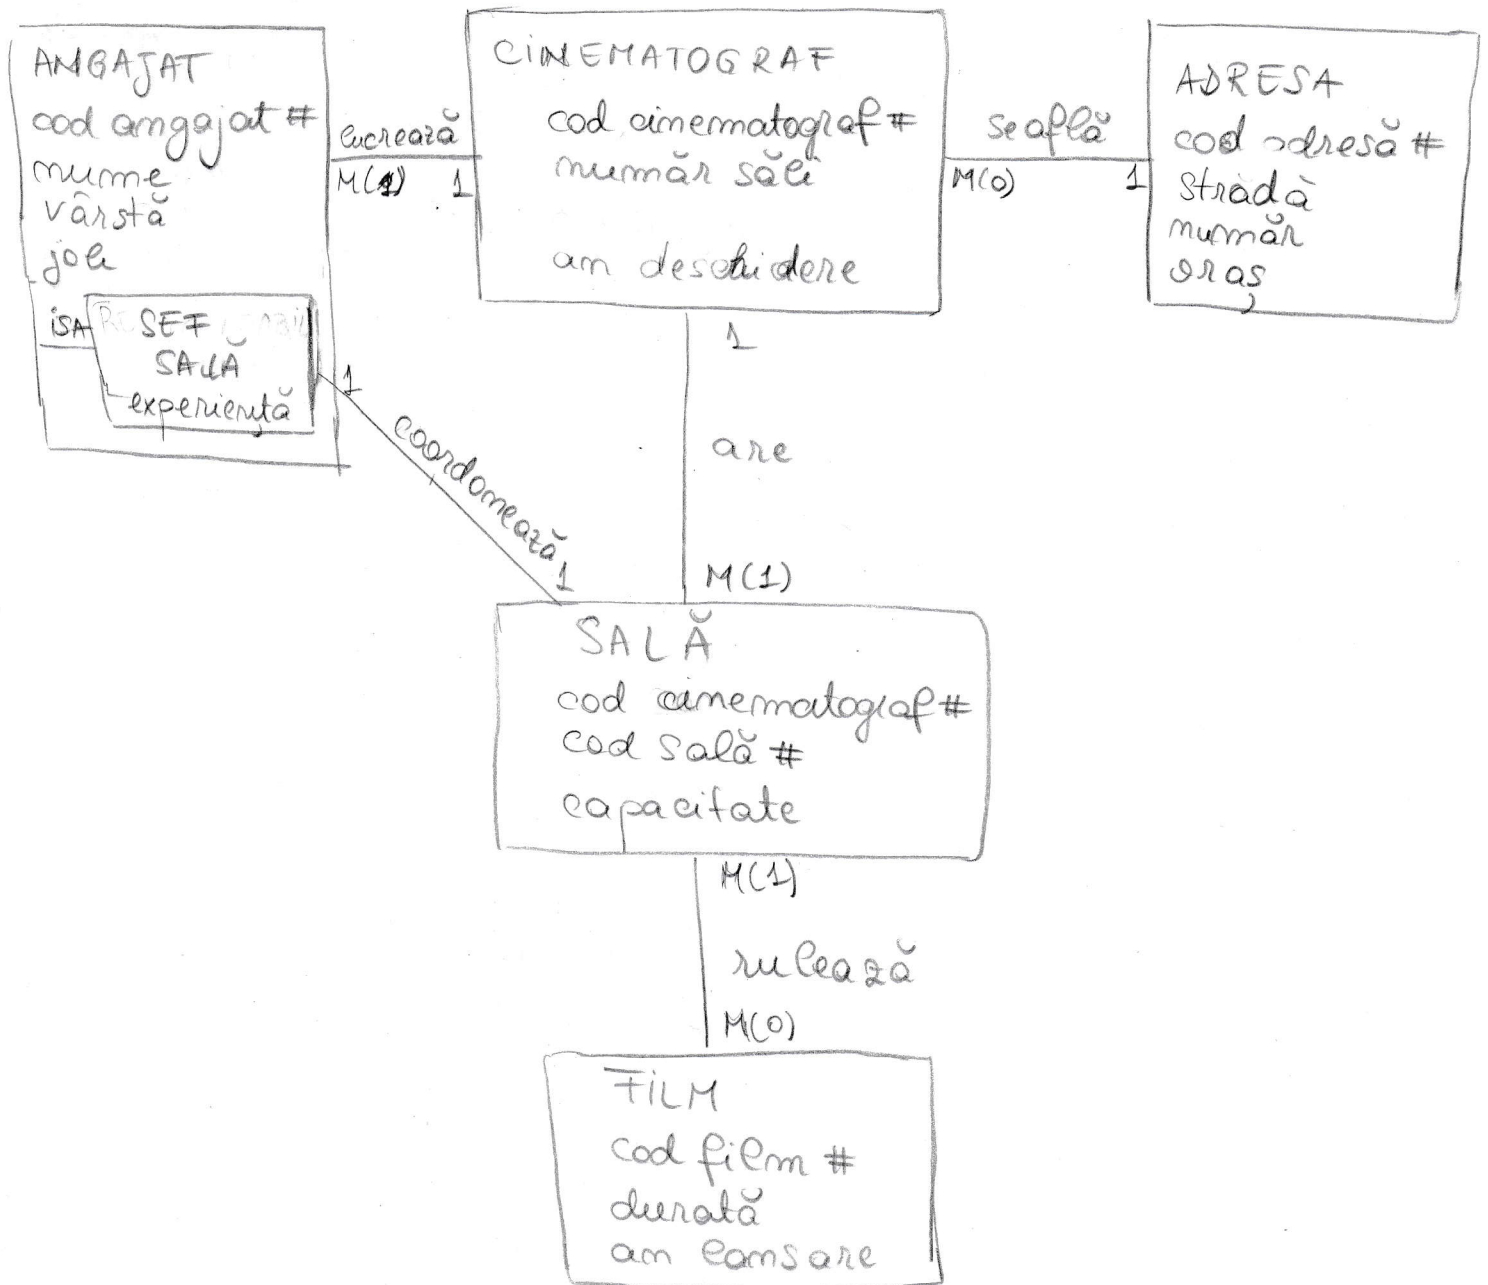 ANGAJAT
cod angajat #
nume
vârstă
job
ISA
ȘEF
SALĂ
experiență
lucrează
M(1)
1
CINEMATOGRAF
cod cinematograf #
număr săli
an deschidere
se află
M(0)
1
ADRESA
cod adresă #
stradă
număr
oraș
1
coordonează
1
1
are
M(1)
SALĂ
cod cinematograf #
cod sală #
capacitate
M(1)
rulează
M(0)
FILM
cod film #
durată
an lansare